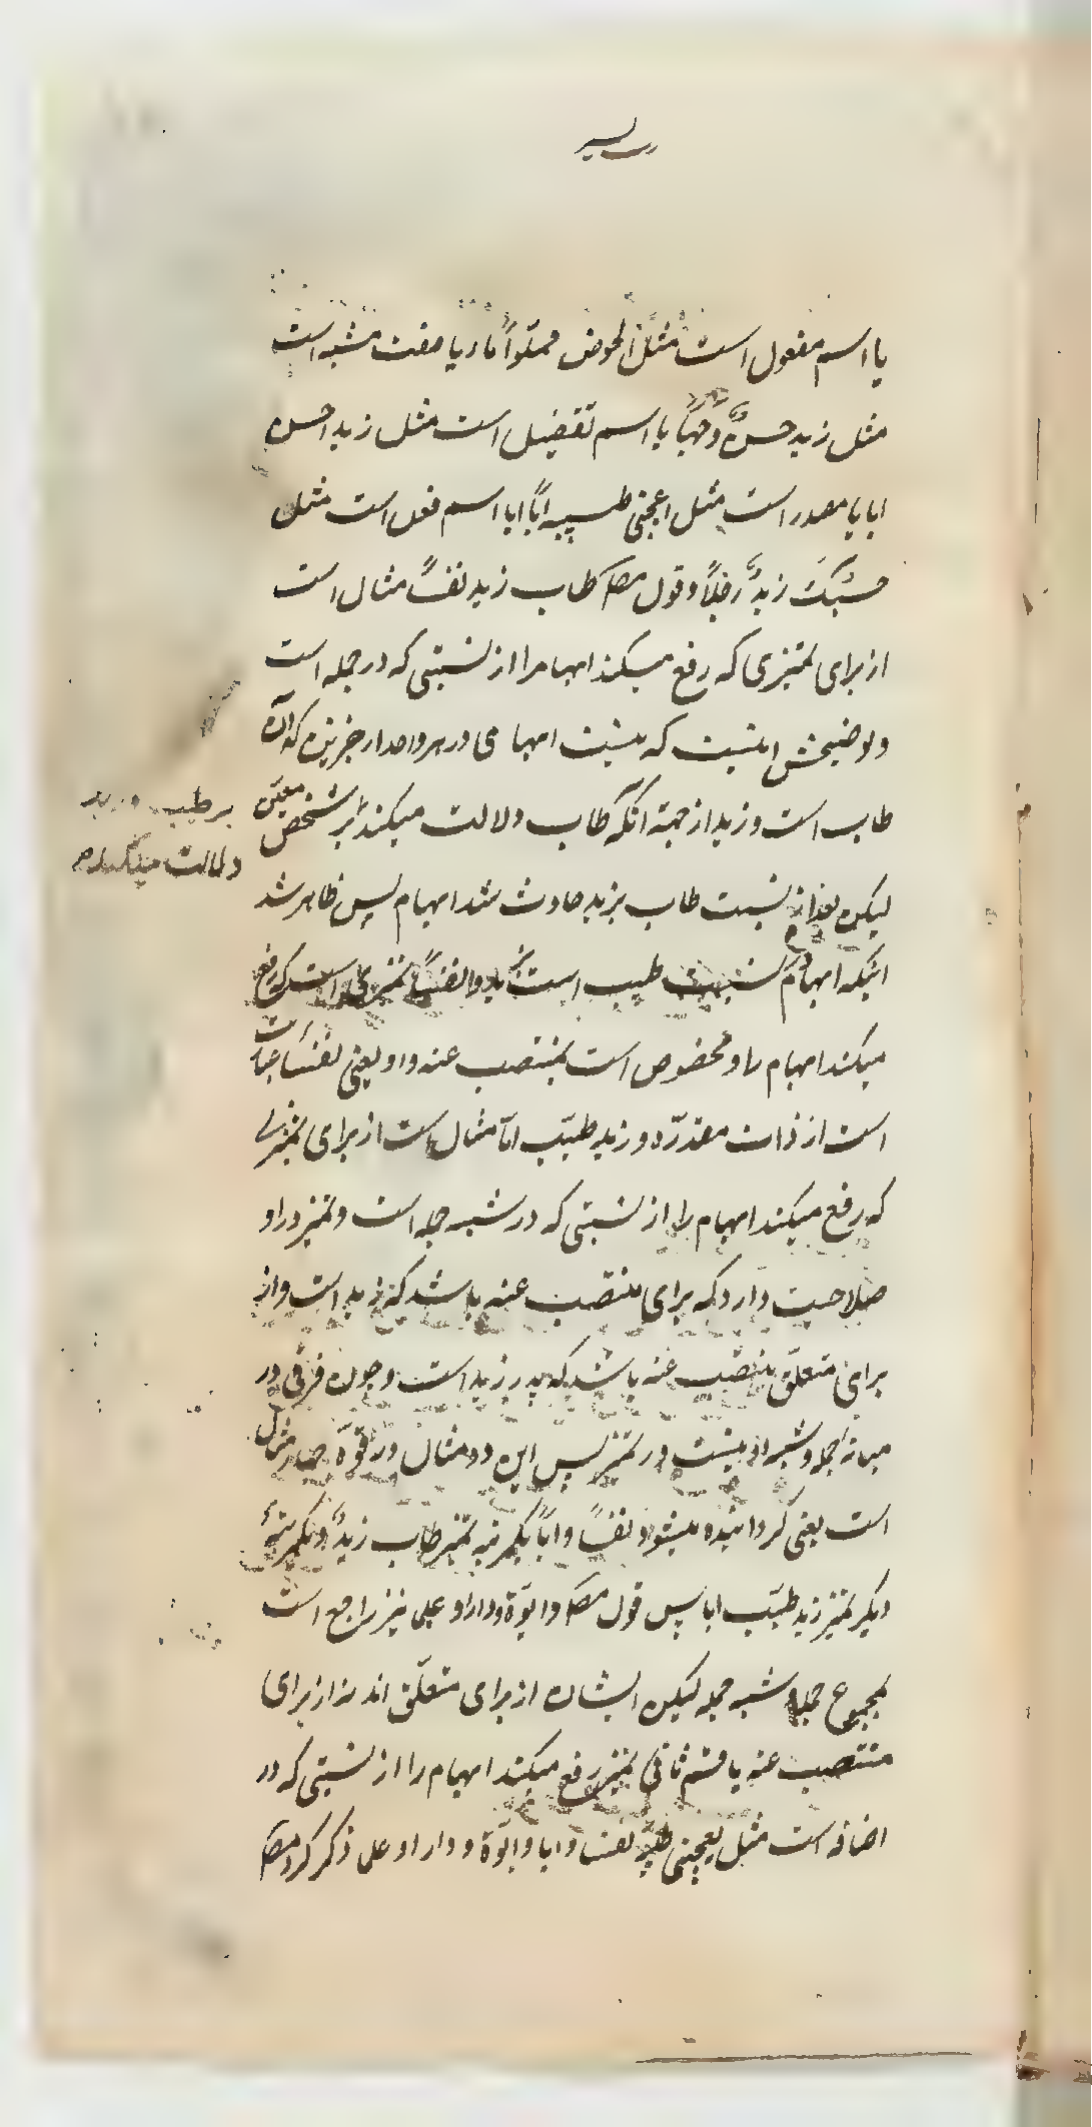 یا اسم مفعول است مثل الحوض مملوّاً ماء یا صفت مشبه است
مثل زید حسنٌ وجهاً یا اسم تفضیل است مثل زید احسن
ابا یا مصدر است مثل اعجبنی طیبه اباً یا اسم فعل است مثل
حسبک زیدٌ رجلاً و قول مصـ کطاب زید نفساً مثال است
از برای تمیزی که رفع میکند ابهام را از نسبتی که در جمله است
و توضیحش اینست که نیست ابهامی در هر واحد از جزئین که آن
طاب است و زید از جهة آنکه طاب دلالت میکند بر شخص معین
بر طیب و زید
دلالت میکند
لیکن بعد از نسبت طاب بزید حادث شد ابهام پس ظاهر شد
اینکه ابهام در نسبت طیب است بزید و نفساً تمیزی است که رفع
میکند ابهام را و مخصوص است بمنتصب عنه و او یعنی نفساً عبارت
است از ذات مقدّره و زید طیّب اباً مثال است از برای تمیزی
که رفع میکند ابهام را از نسبتی که در شبه جمله است و تمیز در او
صلاحیت دارد که برای منتصب عنه باشد که زید است و از
برای متعلّق منتصب عنه باشد که پدر زید است و چون فرقی در
میانه جمله و شبه او نیست در تمیز پس این دو مثال در قوّة چهار مثال
است یعنی گردانیده میشود نفساً و اباً یکمرتبه تمیز طاب زیدٌ و یکمرتبهٔ
دیگر تمیز زید طیّب ابا پس قول مصـ و ابوّة و دارا و علی نیز راجع است
بمجموع جمله و شبه جمله لیکن ایشان از برای متعلّق اند نه از برای
منتصب عنه یا قسم ثانی تمیز رفع میکند ابهام را از نسبتی که در
اضافه است مثل یعجبنی طیبه نفسا و ابا و ابوّة و دارا و علی ذکر کرد مصـ